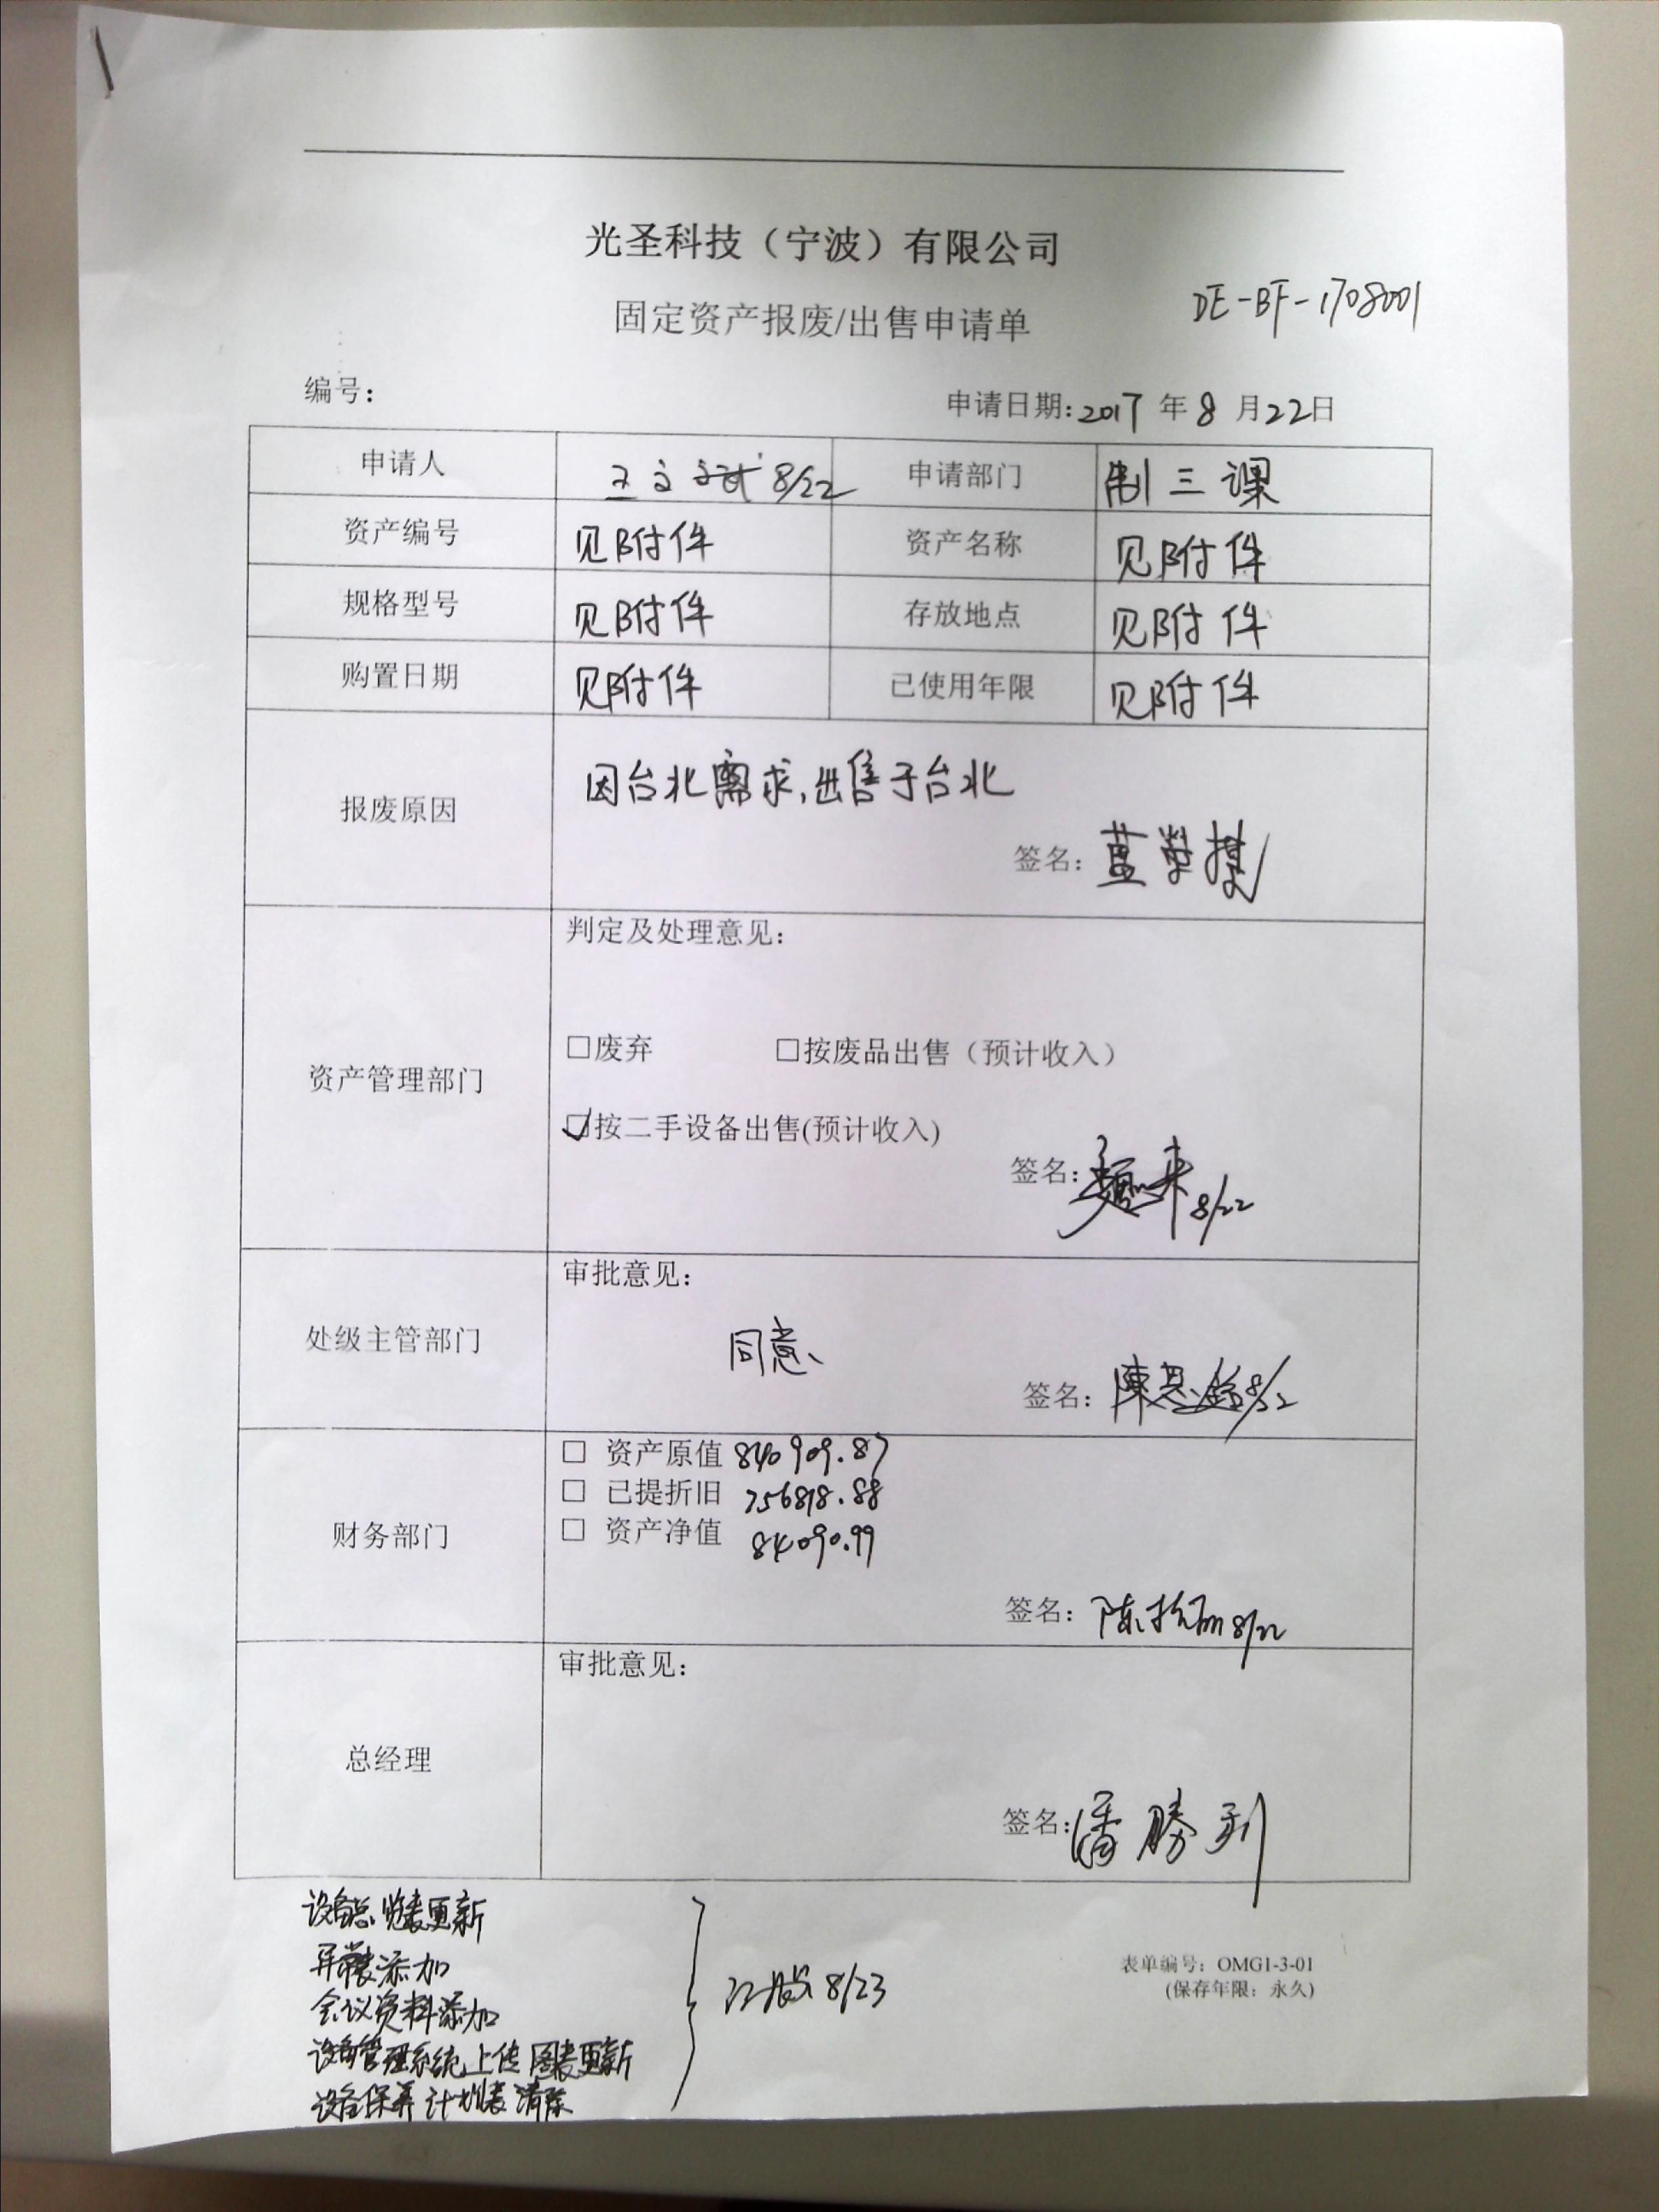 光圣科技（宁波）有限公司
固定资产报废/出售申请单
DE-BF-1708001
编号：
申请日期：2017 年 8 月 22日
申请人 王文斌 8/22 申请部门 制三课
资产编号 见附件 资产名称 见附件
规格型号 见附件 存放地点 见附件
购置日期 见附件 已使用年限 见附件
报废原因
因台北需求，出售于台北
签名：
资产管理部门
判定及处理意见：
□废弃 □按废品出售（预计收入）
☑按二手设备出售(预计收入)
签名： 8/22
处级主管部门
审批意见：
同意
签名： 8/22
财务部门
□ 资产原值 840909.87
□ 已提折旧 756818.88
□ 资产净值 84090.99
签名： 8/22
总经理
审批意见：
签名：潘勝利
设备总览表更新
异常表添加
会议资料添加
设备管理系统上传图表更新
设备保养计划表清除
8/23
表单编号：OMG1-3-01
(保存年限：永久)